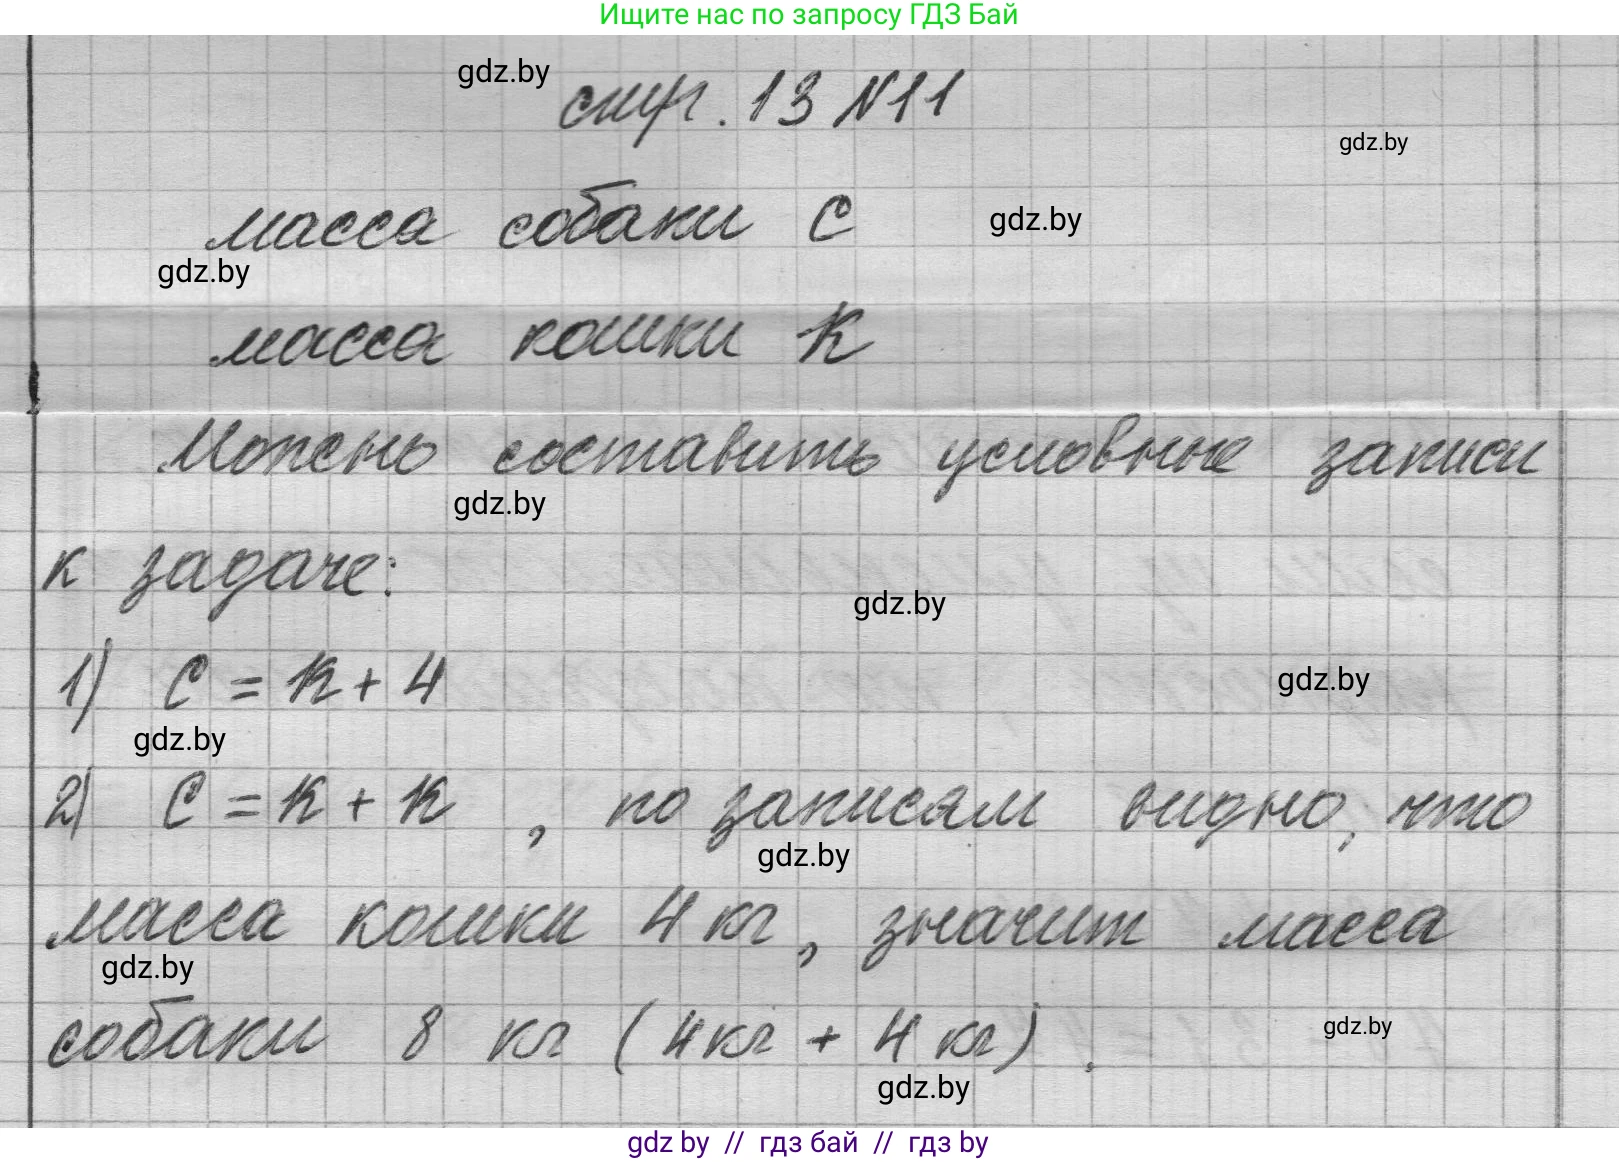 Ищите нас по запросу ГДЗ Бай
gdz.by
стр. 13 N11
gdz.by
масса собаки С
gdz.by
gdz.by
масса кошки К
Можно составить условные записи
gdz.by
к задаче:
gdz.by
1) С = К + 4
gdz.by
gdz.by
2) С = К + К , по записям видно, что
gdz.by
масса кошки 4 кг, значит масса
gdz.by
собаки 8 кг (4 кг + 4 кг).
gdz.by
gdz.by
gdz by // гдз бай // гдз by